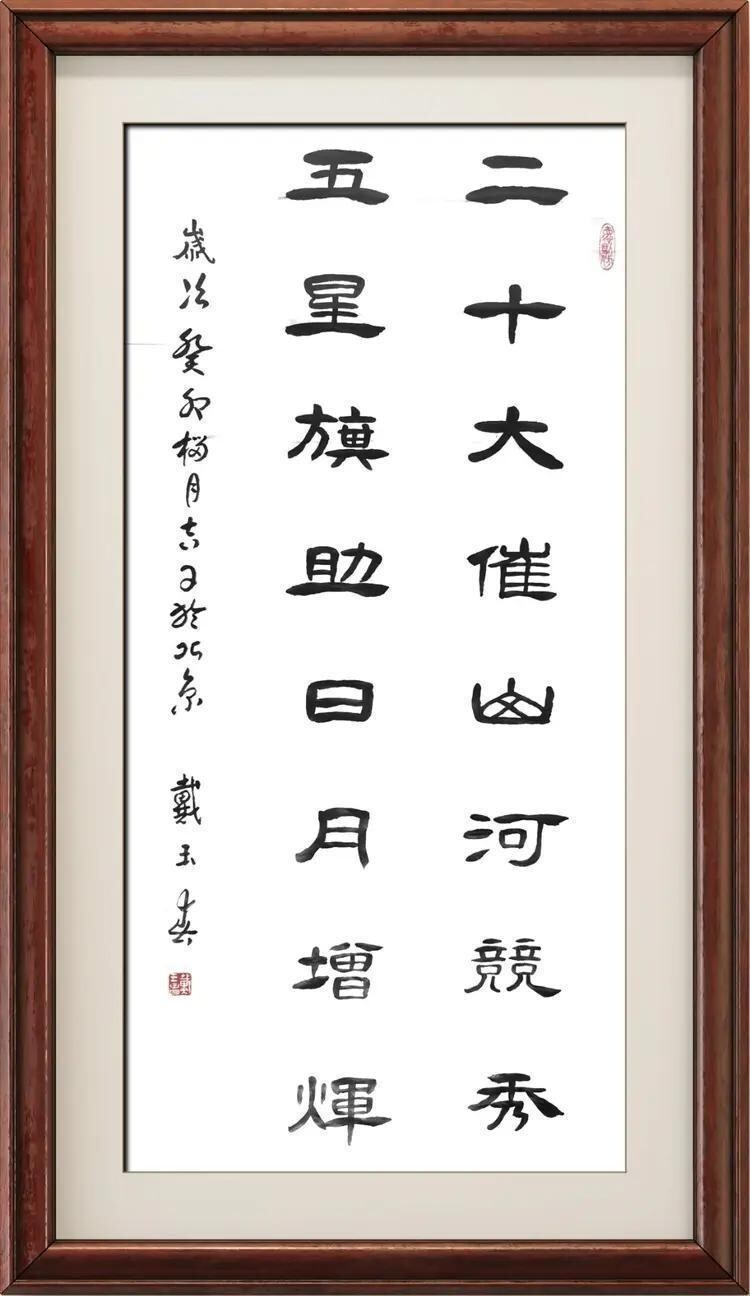 二十大催山河競秀
五星旗助日月增煇
歲次癸卯榴月吉日於北京 戴玉春